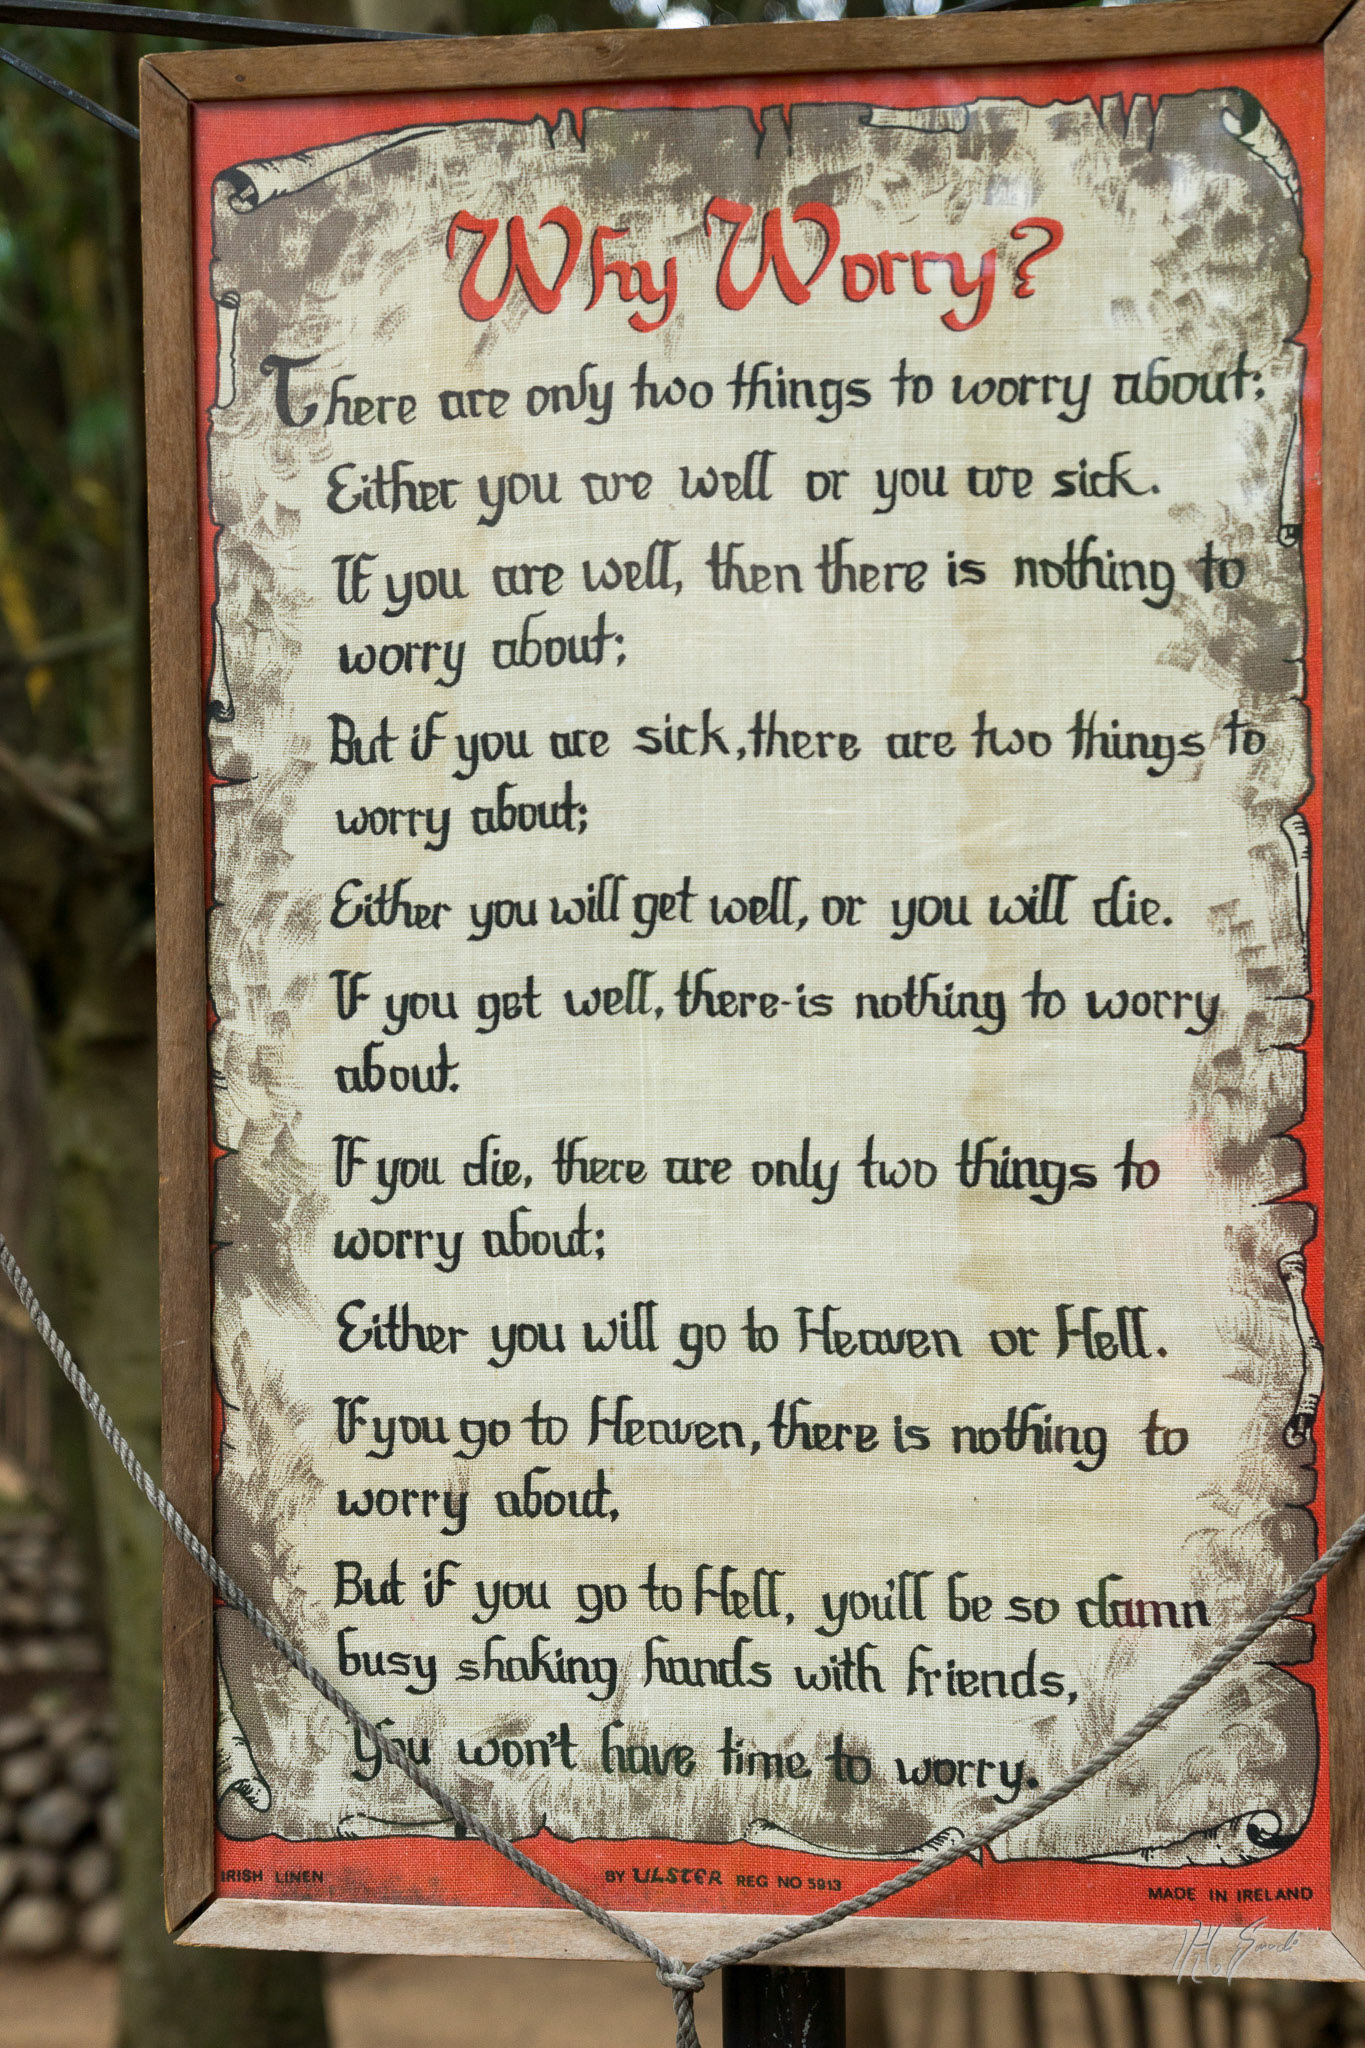 Why Worry?
There are only two things to worry about;
Either you are well or you are sick.
If you are well, then there is nothing to
worry about;
But if you are sick, there are two things to
worry about;
Either you will get well, or you will die.
If you get well, there-is nothing to worry
about.
If you die, there are only two things to
worry about;
Either you will go to Heaven or Hell.
If you go to Heaven, there is nothing to
worry about,
But if you go to Hell, you'll be so damn
busy shaking hands with friends,
You won't have time to worry.
IRISH LINEN BY ULSTER REG NO 5913 MADE IN IRELAND